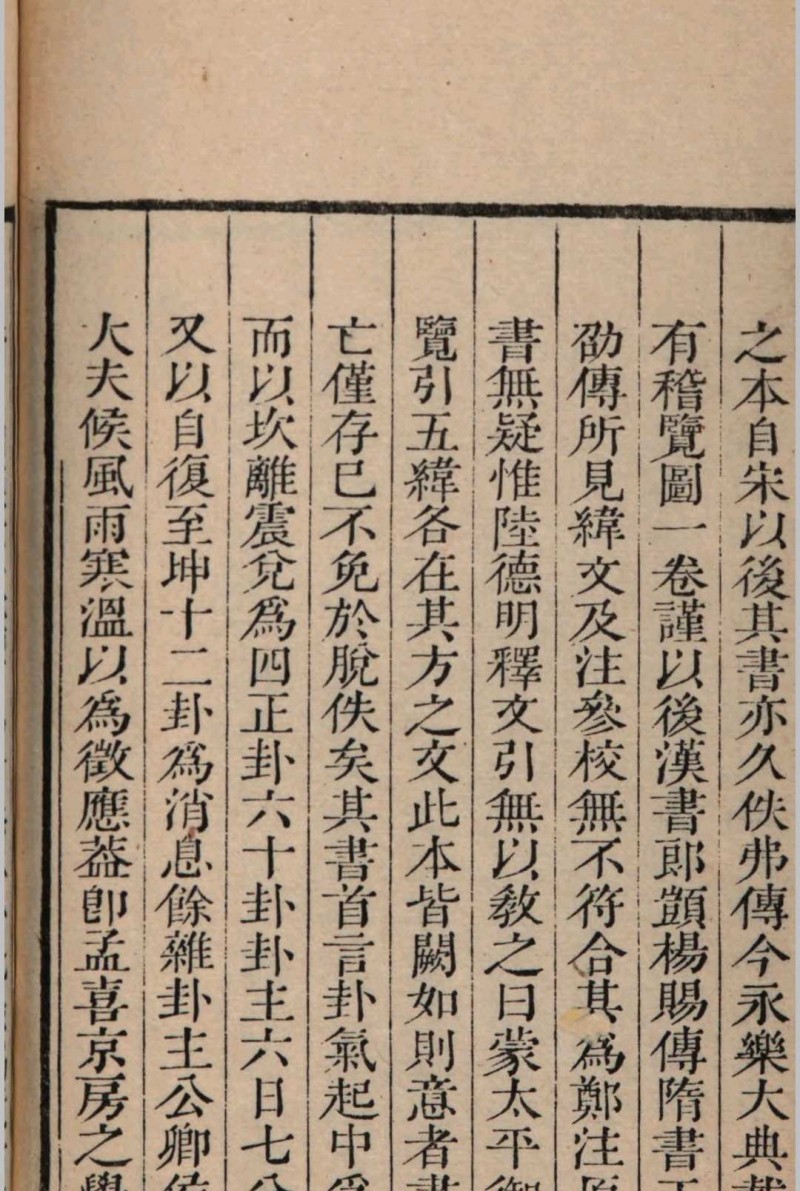 之本自宋以後其書亦久佚弗傳今永樂大典載
有稽覽圖一卷謹以後漢書郎顗楊賜傳隋書王
劭傳所見緯文及注參校無不符合其為鄭注原
書無疑惟陸德明釋文引無以敎之曰蒙太平御
覽引五緯各在其方之文此本皆闕如則意者書
亡僅存已不免於脫佚矣其書首言卦氣起中孚
而以坎離震兌爲四正卦六十卦卦主六日七分
又以自復至坤十二卦爲消息餘雜卦主公卿侯
大夫候風雨寒溫以爲徵應葢卽孟喜京房之學